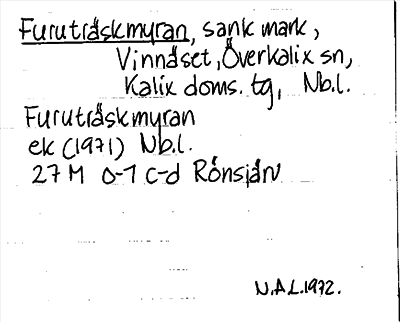 Furuträskmyran, sank mark,
Vinnäset, Överkalix sn,
Kalix doms. tg, Nb.l.
Furuträskmyran
ek (1971) Nb.l.
27 M 0-1 c-d Rönsjärv
N.A.L.1972.